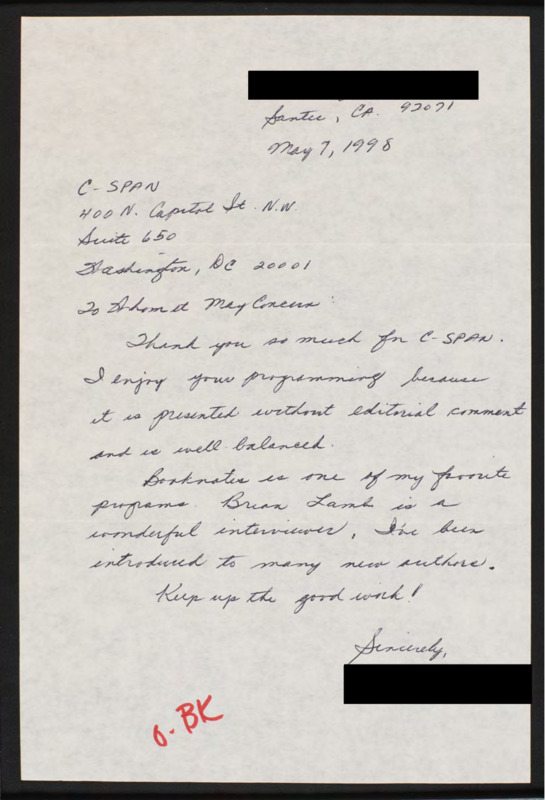 Santee, CA. 92071
May 7, 1998
C-SPAN
400 N. Capitol St. N.W.
Suite 650
Washington, DC 20001
To Whom it May Concern:
Thank you so much for C-SPAN.
I enjoy your programming because
it is presented without editorial comment
and is well balanced.
Booknotes is one of my favorite
programs. Brian Lamb is a
wonderful interviewer. I've been
introduced to many new authors.
Keep up the good work!
Sincerely,
O-BK